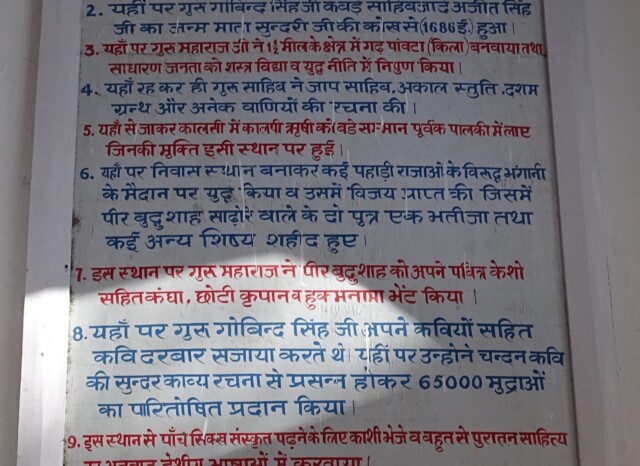 2. यहीं पर गुरु गोविन्द सिंह जी के बड़े साहिबजादे अजीत सिंह
जी का जन्म माता सुन्दरी जी की कोख से (1686ई.) हुआ।
3. यहाँ पर गुरु महाराज जी ने 1½ मील के क्षेत्र में गढ़ पांवटा (किला) बनवाया तथा
साधारण जनता को शस्त्र विद्या व युद्ध नीति में निपुण किया।
4. यहाँ रह कर ही गुरु साहिब ने जाप साहिब, अकाल स्तुति, दशम
ग्रन्थ और अनेक वाणियों की रचना की।
5. यहाँ से जाकर कालसी में कालपी ऋषी को बड़े सम्मान पूर्वक पालकी में लाए
जिनकी मुक्ति इसी स्थान पर हुई।
6. यहाँ पर निवास स्थान बनाकर कई पहाड़ी राजाओं के विरुद्ध भंगानी
के मैदान पर युद्ध किया व उसमें विजय प्राप्त की जिसमें
पीर बुद्धुशाह साढोरे वाले के दो पुत्र एक भतीजा तथा
कई अन्य शिष्य शहीद हुए।
7. इस स्थान पर गुरु महाराज ने पीर बुद्धुशाह को अपने पवित्र केशो
सहित कंघा, छोटी कृपान व हुक्मनामा भेंट किया।
8. यहाँ पर गुरु गोविन्द सिंह जी अपने कवियों सहित
कवि दरबार सजाया करते थे। यहीं पर उन्होने चन्दन कवि
की सुन्दर काव्य रचना से प्रसन्न होकर 65000 मुद्राओं
का पारितोषित प्रदान किया।
9. इस स्थान से पाँच सिक्ख संस्कृत पढ़ने के लिए काशी भेजे व बहुत से पुरातन साहित्य
का अनुवाद देशीय भाषाओं में करवाया।